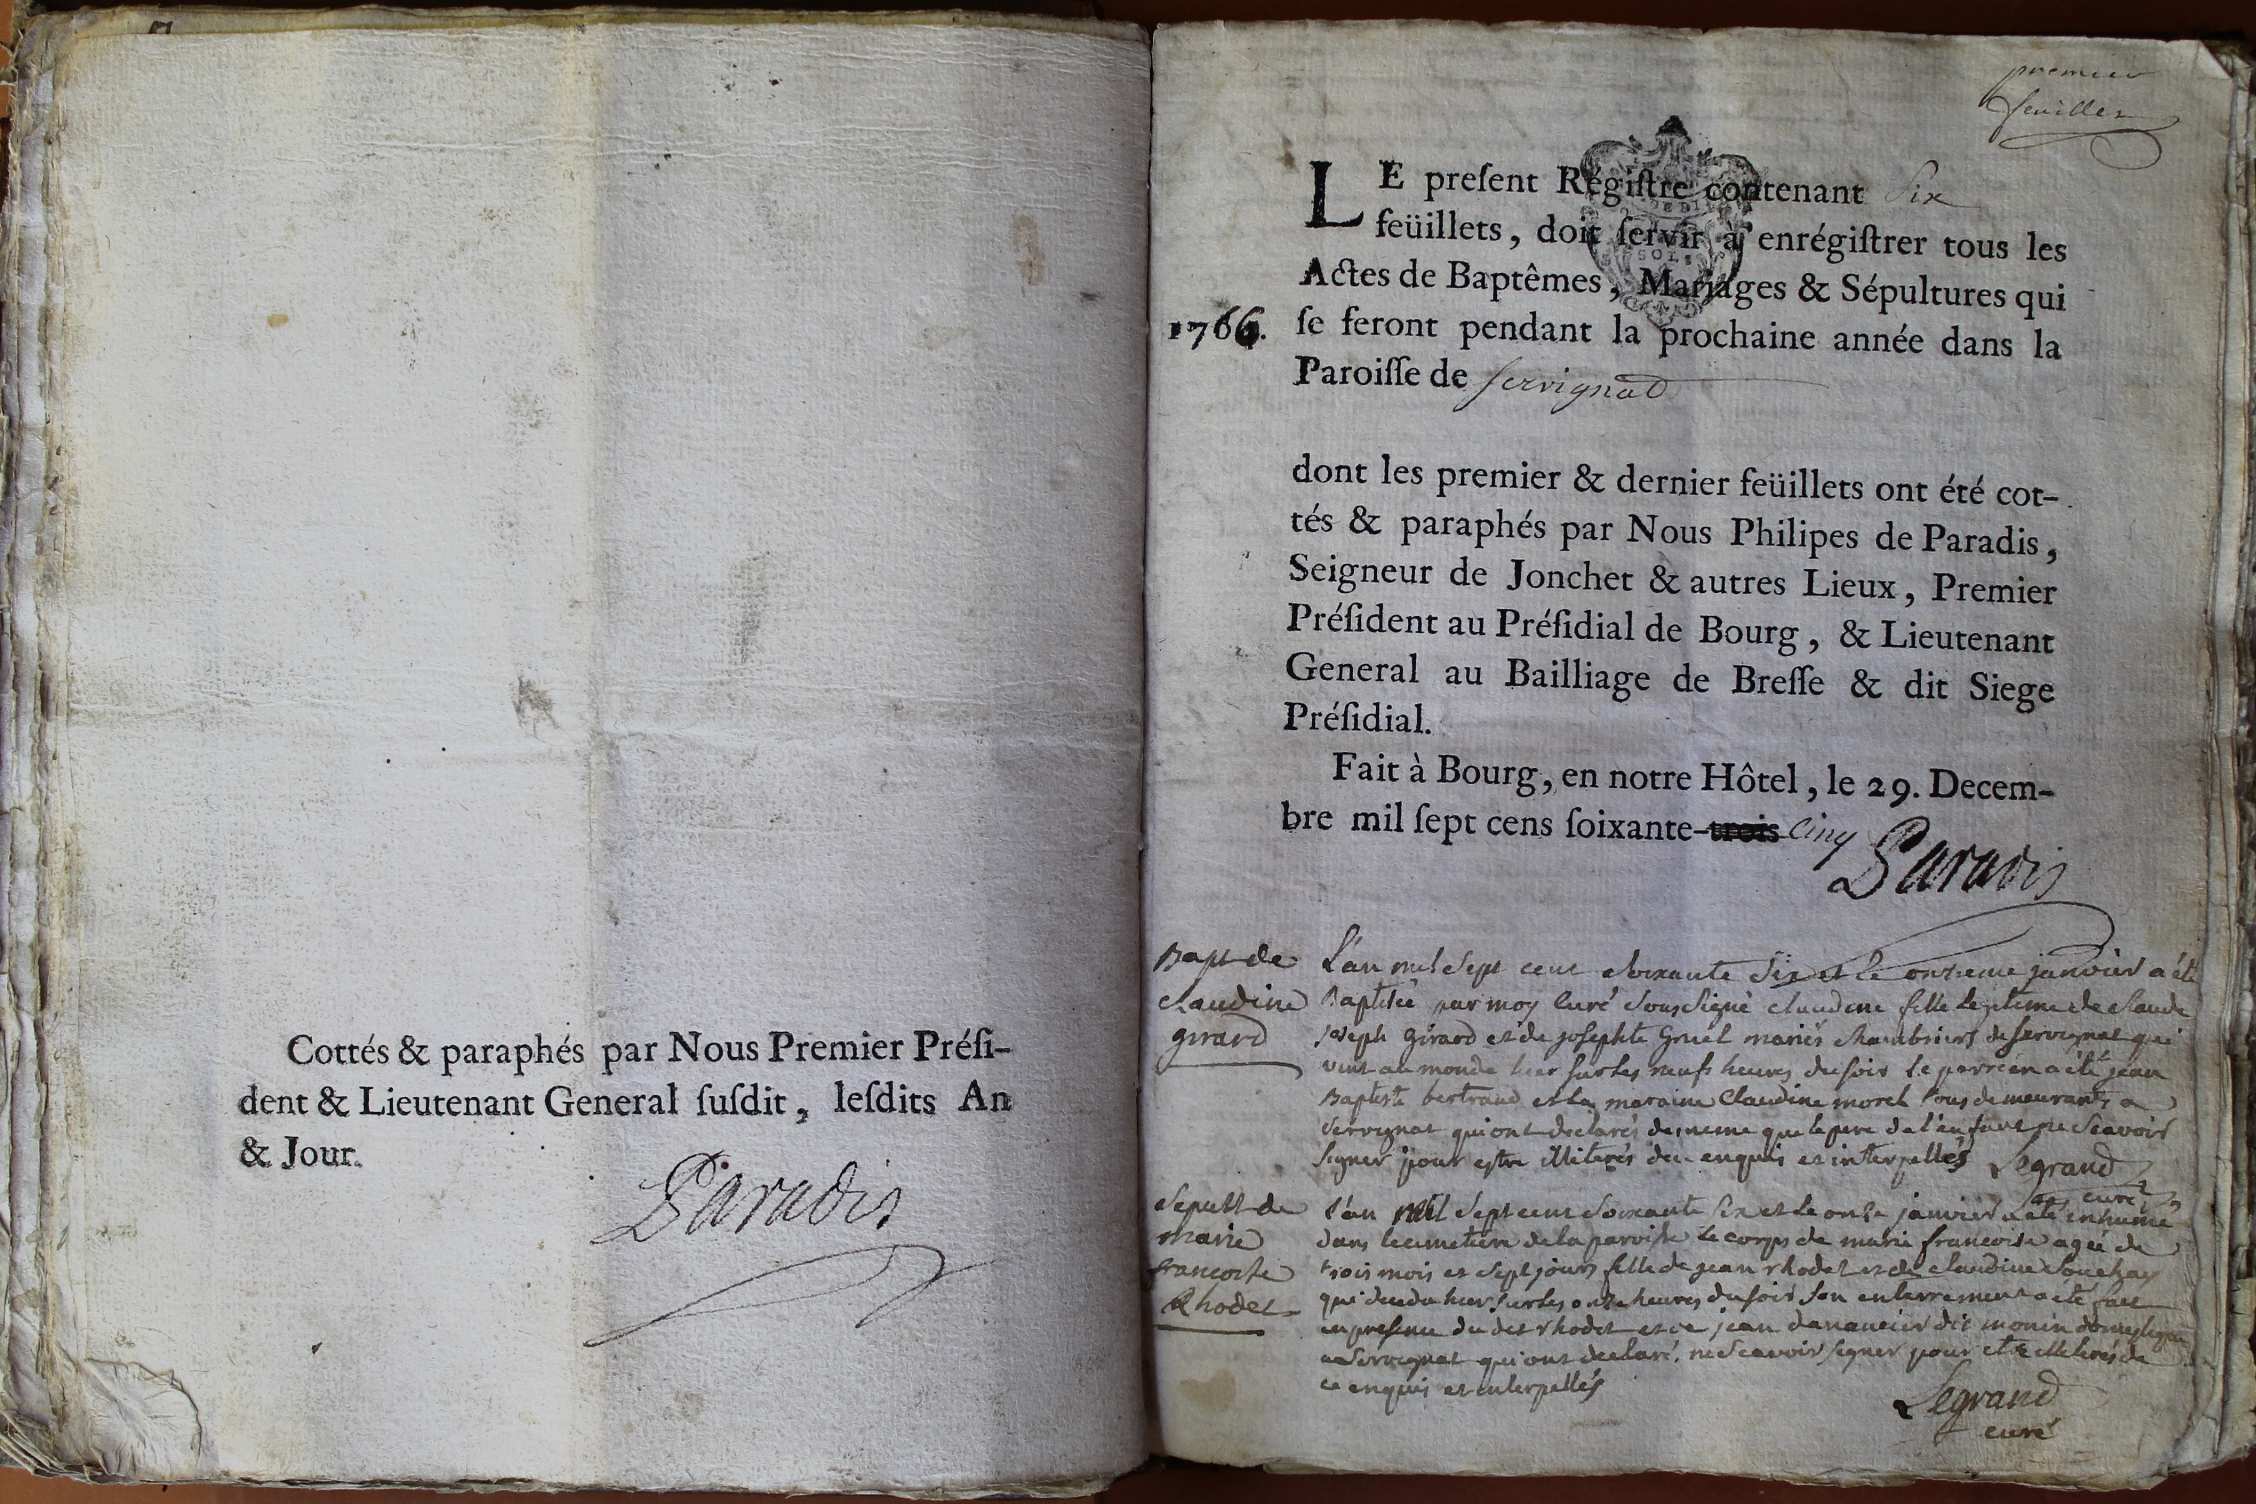 Cottés & paraphés par Nous Premier Préſi-
dent & Lieutenant General ſuſdit, leſdits An
& Jour.
Paradis
premier
feuillet
LE preſent Régiſtre contenant Six
feüillets, doit ſervir à enrégiſtrer tous les
Actes de Baptêmes, Mariages & Sépultures qui
1766. ſe feront pendant la prochaine année dans la
Paroiſſe de servignat
dont les premier & dernier feüillets ont été cot-
tés & paraphés par Nous Philipes de Paradis,
Seigneur de Jonchet & autres Lieux, Premier
Préſident au Préſidial de Bourg, & Lieutenant
General au Bailliage de Breſſe & dit Siege
Préſidial.
Fait à Bourg, en notre Hôtel, le 29. Decem-
bre mil ſept cens ſoixante-trois cinq
Paradis
Bapt de
claudine
girard
L'an mil sept cent soixante six et le onzieme janvier a été
Baptisée par moy curé soussigné claudine fille legitime de claude
joseph girard et de josephte gruel mariés de servignat qui
vint au monde hier sur les neufs heures du soir le parrein a été jean
Baptiste bertrand et la maraine Claudine morel tous demeurants a
servignat qui ont declarés de meme que le pere de l'enfant ne scavoir
signer pour estre illiterés de ce enquis et interpellés Legrand
curé
sepult de
marie
francoise
Rhodet
L'an mil sept cent soixante six et le onze janvier a été inhumé
dans le cimetiere de la paroisse le corps de marie francoise agée de
trois mois et sept jours fille de jean rhodet et de claudine
qui deceda hier sur les onze heures du soir son enterrement a eté fait
en presence du dit rhodet et de jean dit monin domestique
a servignat qui ont declaré ne scavoir signer pour etre illiterés de
ce enquis et interpellés
Legrand
curé